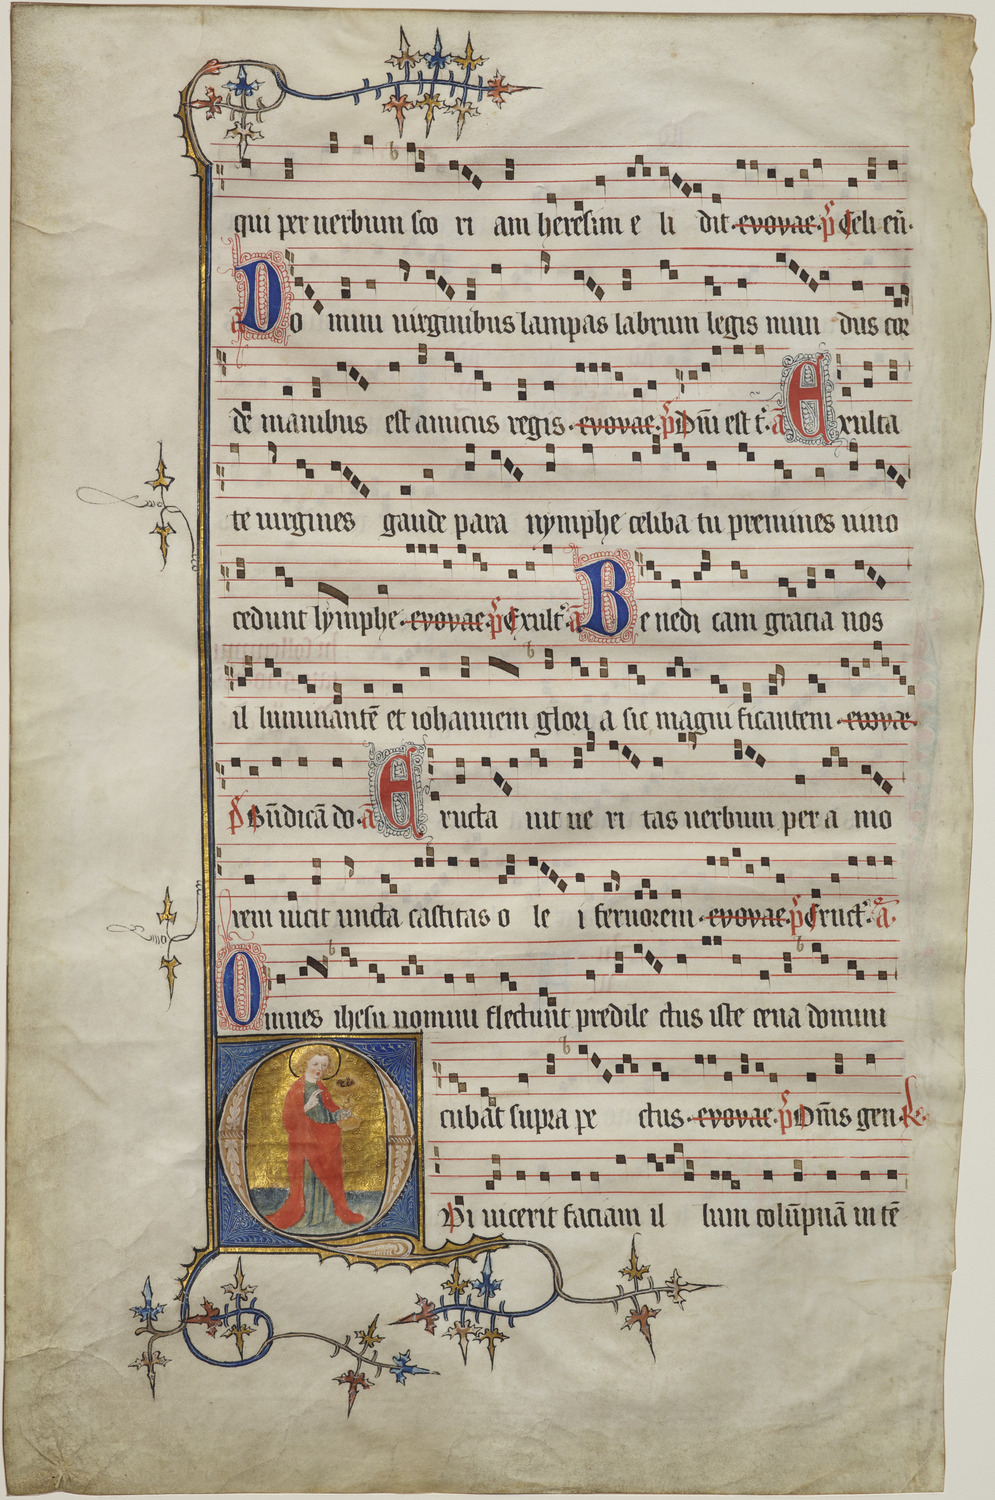 qui per uerbum sco ri am heresim e li dit. evovae. p̄s Celi en̄.
a Do mini uirginibus lampas labrum legis mun dus cor
de manibus est amicus regis. evovae. p̄s Dn̄i est t̄. a Exulta
te uirgines gaude para nymphe celiba tu premines uino
cedunt lymphe. evovae. p̄s Exult̄. a Be nedi cam gracia nos
il luminantē et iohannem glori a sic magni ficantem. evovae.
p̄s Bn̄dicā do. a Eructa uit ue ri tas uerbum per a mo
rem uicit uncta castitas o le i feruorem. evovae. p̄s Eruct̄. a.
Omnes ihesu nomini flectunt predile ctus iste cena domini
cubat supra pe ctus. evovae. p̄s Dn̄is gen. R.
Qui uicerit faciam il lum colūpnā in tē